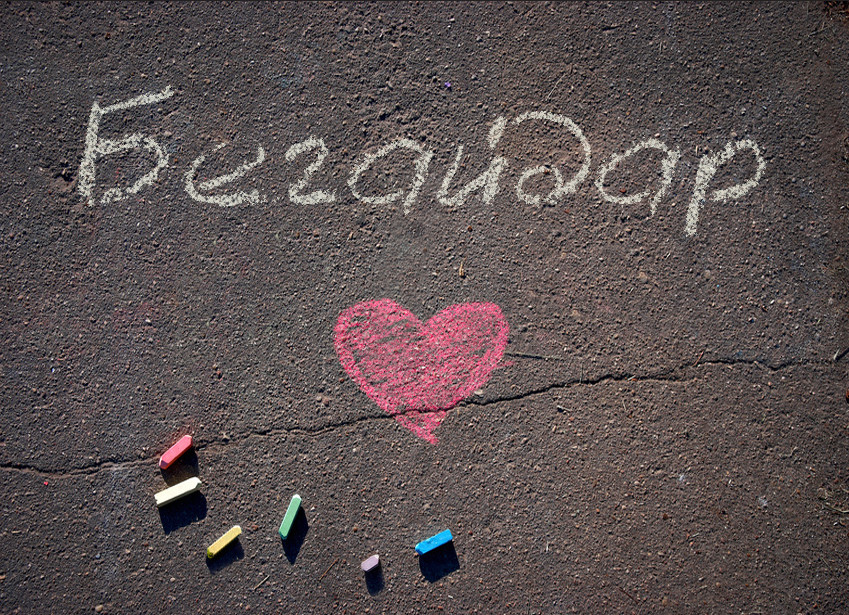 Бегайдар